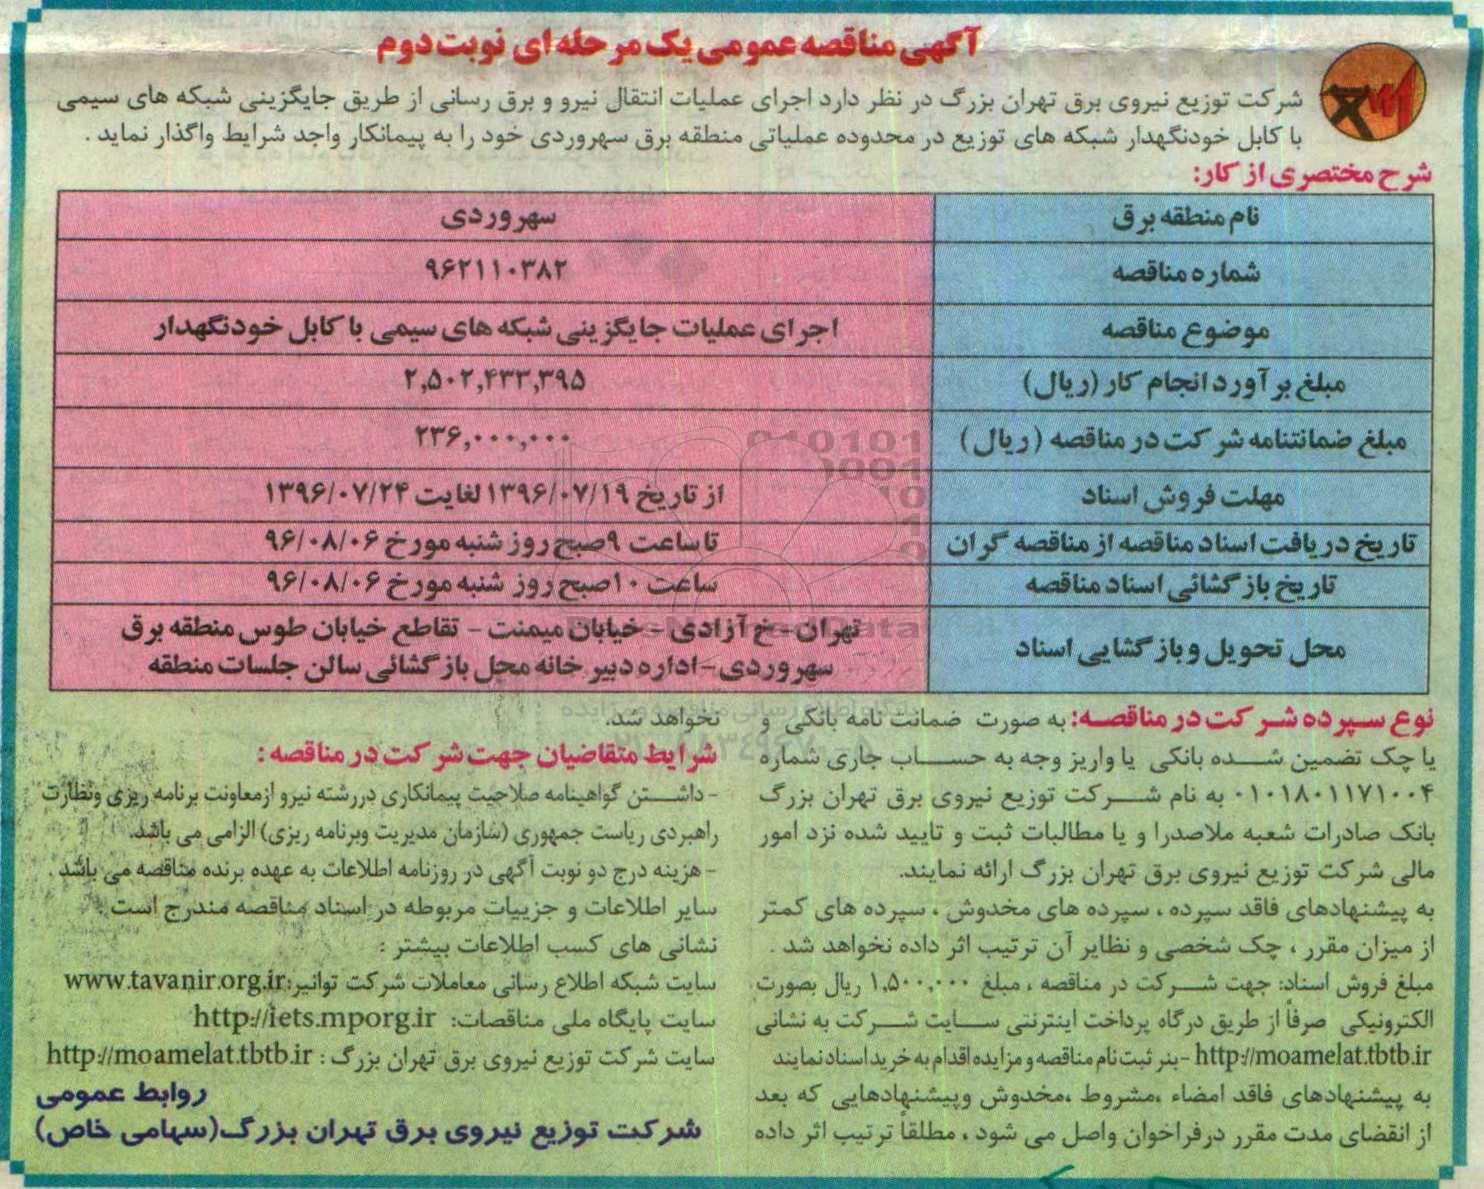 آگهی مناقصه عمومی یک مرحله ای نوبت دوم
شرکت توزیع نیروی برق تهران بزرگ در نظر دارد اجرای عملیات انتقال نیرو و برق رسانی از طریق جایگزینی شبکه های سیمی
با کابل خودنگهدار شبکه های توزیع در محدوده عملیاتی منطقه برق سهروردی خود را به پیمانکار واجد شرایط واگذار نماید .
شرح مختصری از کار:
نام منطقه برق سهروردی
شماره مناقصه ۹۶۲۱۱۰۳۸۲
موضوع مناقصه اجرای عملیات جایگزینی شبکه های سیمی با کابل خودنگهدار
مبلغ برآورد انجام کار (ریال) ۲,۵۰۲,۴۳۳,۳۹۵
مبلغ ضمانتنامه شرکت در مناقصه (ریال) ۲۳۶,۰۰۰,۰۰۰
مهلت فروش اسناد از تاریخ ۱۳۹۶/۰۷/۱۹ لغایت ۱۳۹۶/۰۷/۲۴
تاریخ دریافت اسناد مناقصه از مناقصه گران تا ساعت ۹ صبح روز شنبه مورخ ۹۶/۰۸/۰۶
تاریخ بازگشائی اسناد مناقصه ساعت ۱۰ صبح روز شنبه مورخ ۹۶/۰۸/۰۶
محل تحویل و بازگشایی اسناد تهران - خ آزادی - خیابان میمنت - تقاطع خیابان طوس منطقه برق
سهروردی - اداره دبیر خانه محل بازگشائی سالن جلسات منطقه
نوع سپرده شرکت در مناقصه: به صورت ضمانت نامه بانکی و
یا چک تضمین شده بانکی یا واریز وجه به حساب جاری شماره
۰۱۰۱۸۰۱۱۷۱۰۰۴ به نام شرکت توزیع نیروی برق تهران بزرگ
بانک صادرات شعبه ملاصدرا و یا مطالبات ثبت و تایید شده نزد امور
مالی شرکت توزیع نیروی برق تهران بزرگ ارائه نمایند.
به پیشنهادهای فاقد سپرده ، سپرده های مخدوش ، سپرده های کمتر
از میزان مقرر ، چک شخصی و نظایر آن ترتیب اثر داده نخواهد شد .
مبلغ فروش اسناد: جهت شرکت در مناقصه ، مبلغ ۱,۵۰۰,۰۰۰ ریال بصورت
الکترونیکی صرفاً از طریق درگاه پرداخت اینترنتی سایت شرکت به نشانی
http://moamelat.tbtb.ir -بنر ثبت نام مناقصه و مزایده اقدام به خرید اسناد نمایند
به پیشنهادهای فاقد امضاء ،مشروط ،مخدوش وپیشنهادهایی که بعد
از انقضای مدت مقرر درفراخوان واصل می شود ، مطلقاً ترتیب اثر داده
نخواهد شد.
شرایط متقاضیان جهت شرکت در مناقصه :
- داشتن گواهینامه صلاحیت پیمانکاری دررشته نیرو ازمعاونت برنامه ریزی ونظارت
راهبردی ریاست جمهوری (سازمان مدیریت وبرنامه ریزی) الزامی می باشد.
- هزینه درج دو نوبت آگهی در روزنامه اطلاعات به عهده برنده مناقصه می باشد .
سایر اطلاعات و جزییات مربوطه در اسناد مناقصه مندرج است .
نشانی های کسب اطلاعات بیشتر :
سایت شبکه اطلاع رسانی معاملات شرکت توانیر: www.tavanir.org.ir
سایت پایگاه ملی مناقصات: http://iets.mporg.ir
سایت شرکت توزیع نیروی برق تهران بزرگ : http://moamelat.tbtb.ir
روابط عمومی
شرکت توزیع نیروی برق تهران بزرگ(سهامی خاص)